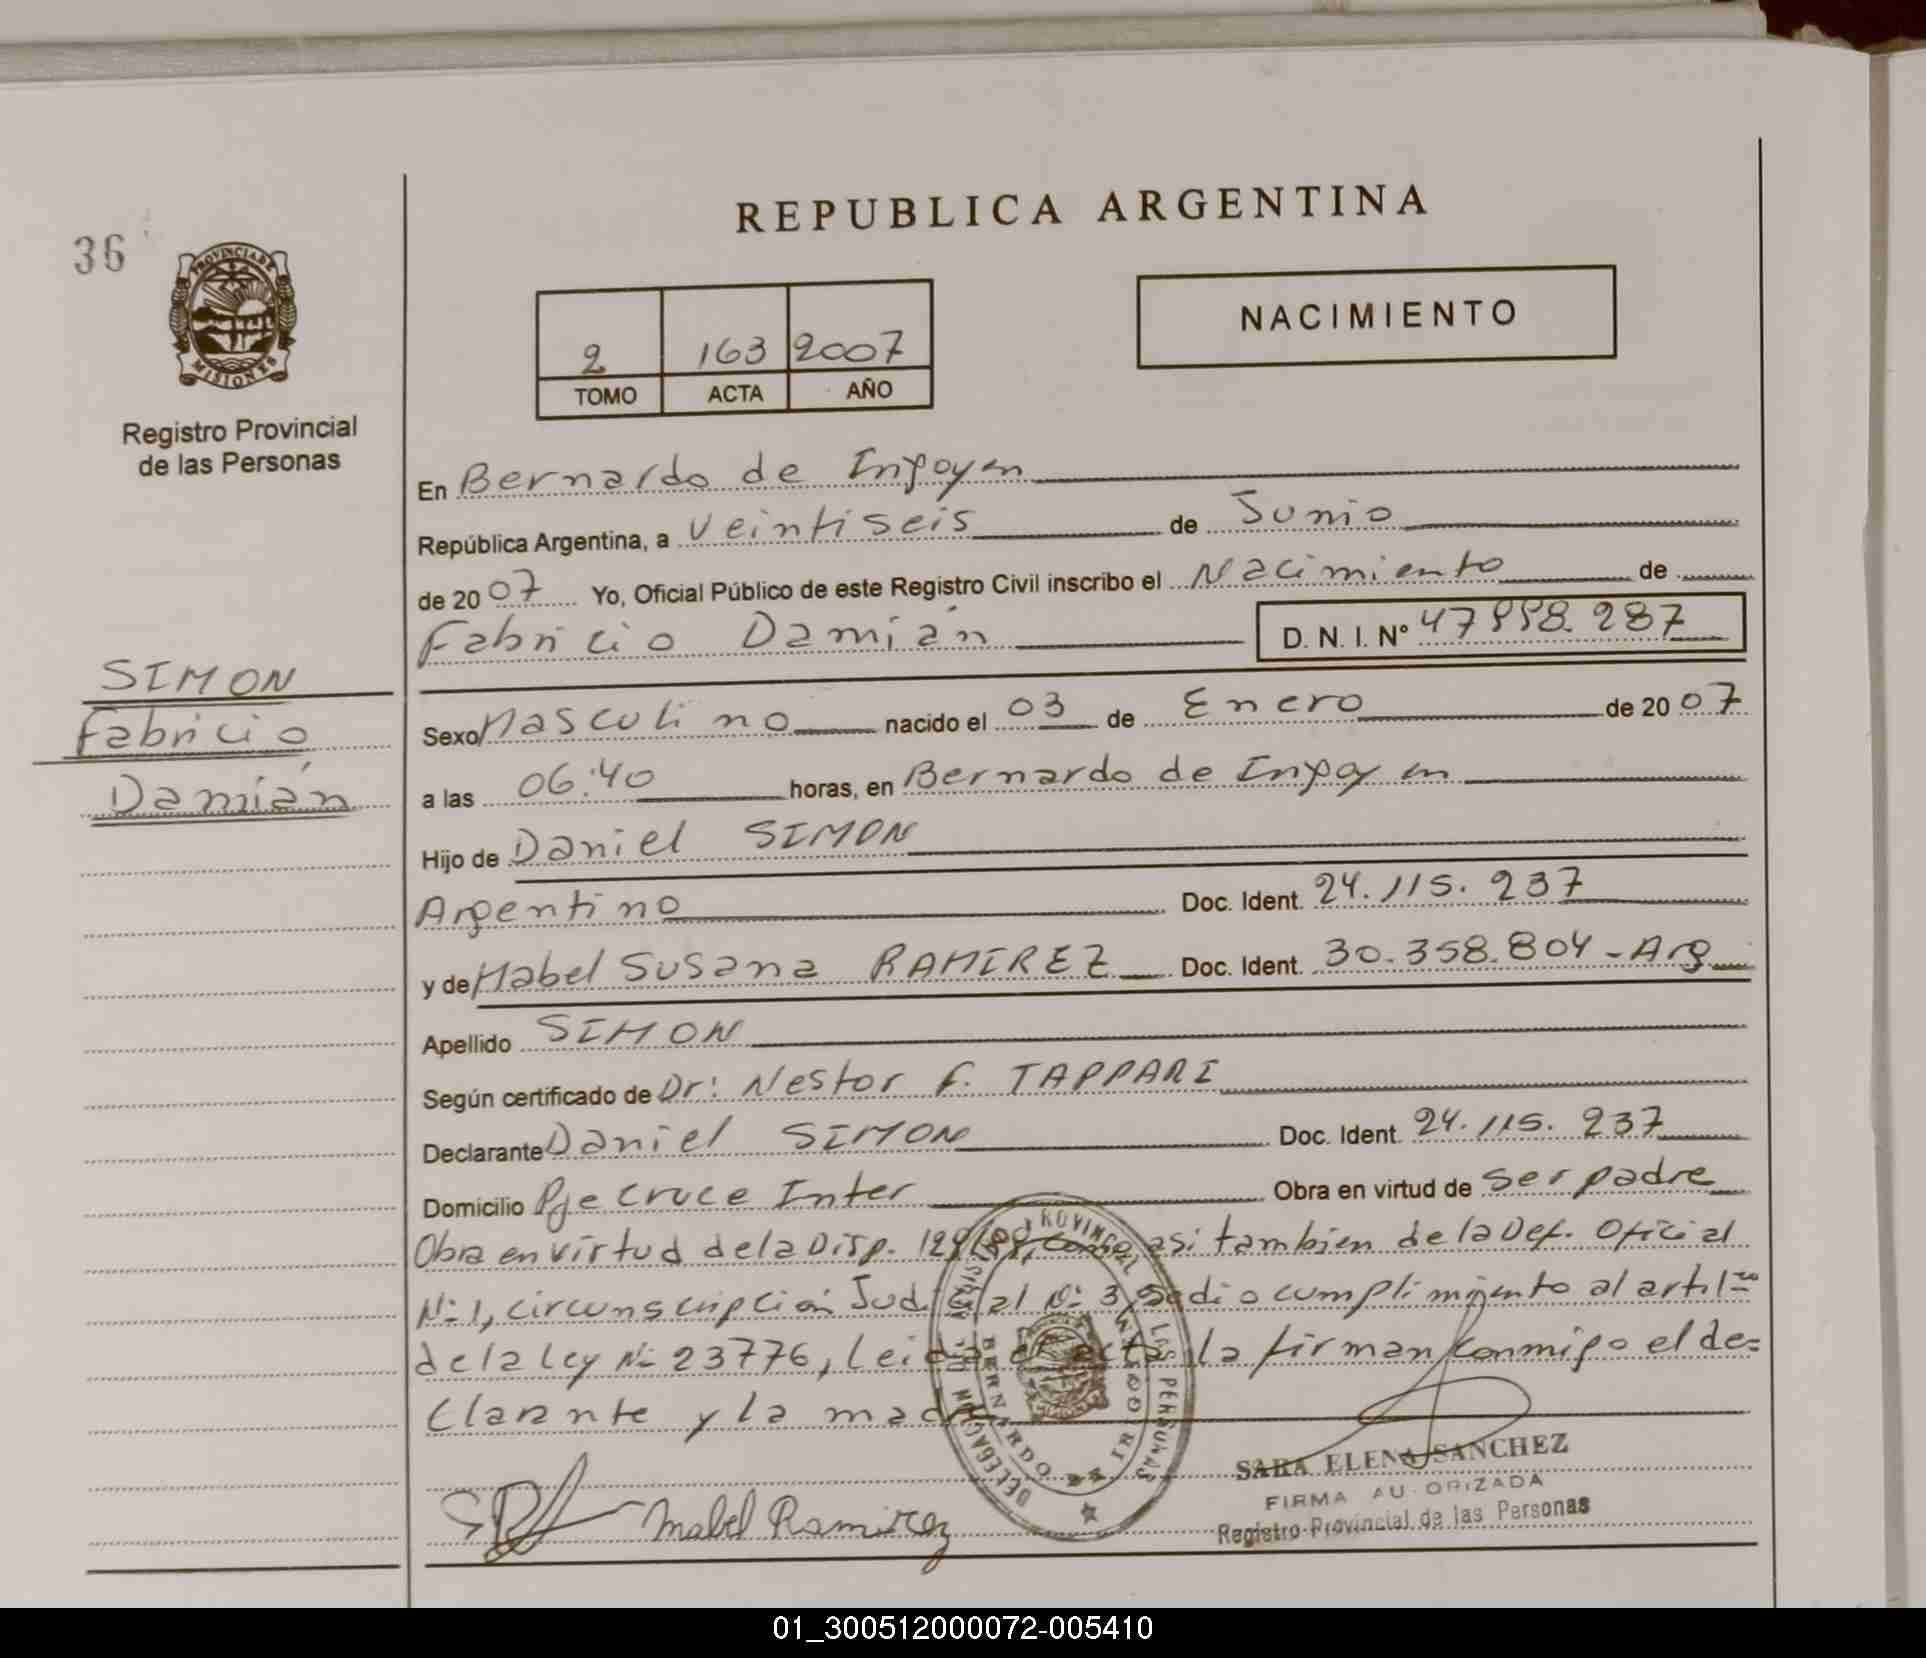 36
PROVINCIA DE
MISIONES
Registro Provincial
de las Personas
SIMON
Fabricio
Damián
REPUBLICA ARGENTINA
2 163 2007
TOMO ACTA AÑO
NACIMIENTO
En Bernardo de Irigoyen
República Argentina, a Veintiseis de Junio
de 2007 Yo, Oficial Público de este Registro Civil inscribo el Nacimiento de
Fabricio Damián D. N. I. N°
Sexo Masculino nacido el 03 de Enero de 2007
a las 06:40 horas, en Bernardo de Irigoyen
Hijo de Daniel SIMON
Argentino Doc. Ident. 24.115.237
y de Mabel Susana RAMIREZ Doc. Ident. 30.358.804 - Arg
Apellido SIMON
Según certificado de Dr: Nestor F. TAPPARI
Declarante Daniel SIMON Doc. Ident. 24.115.237
Domicilio Pje Cruce Inter Obra en virtud de ser padre
Obra en virtud de la Disp. como asi tambien de la Def. Oficial
Nº 1, circunscripción Judicial Nº 3, se dio cumplimiento al art. 1ro
de la Ley Nº 23776, Leida el acta la firman conmigo el de=
clarante y la madre
Mabel Ramirez
SARA ELENA SANCHEZ
FIRMA AUTORIZADA
Registro Provincial de las Personas
01_300512000072-005410